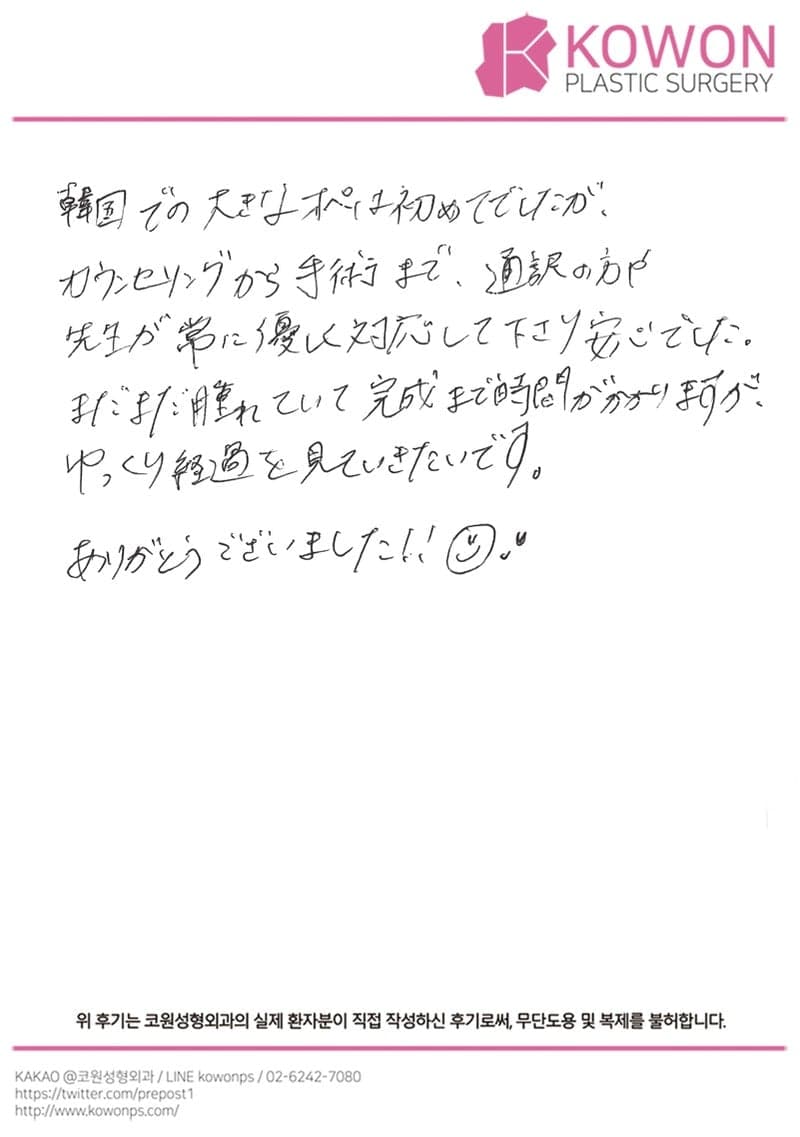 KOWON
PLASTIC SURGERY
韓国での大きなオペは初めてでしたが、
カウンセリングから手術まで、通訳の方や
先生が常に優しく対応して下さり安心でした。
まだまだ腫れていて完成まで時間がかかりますが、
ゆっくり経過を見ていきたいです。
ありがとうございました!!
위 후기는 코원성형외과의 실제 환자분이 직접 작성하신 후기로써, 무단도용 및 복제를 불허합니다.
KAKAO @코원성형외과 / LINE kowonps / 02-6242-7080
https://twitter.com/prepost1
http://www.kowonps.com/